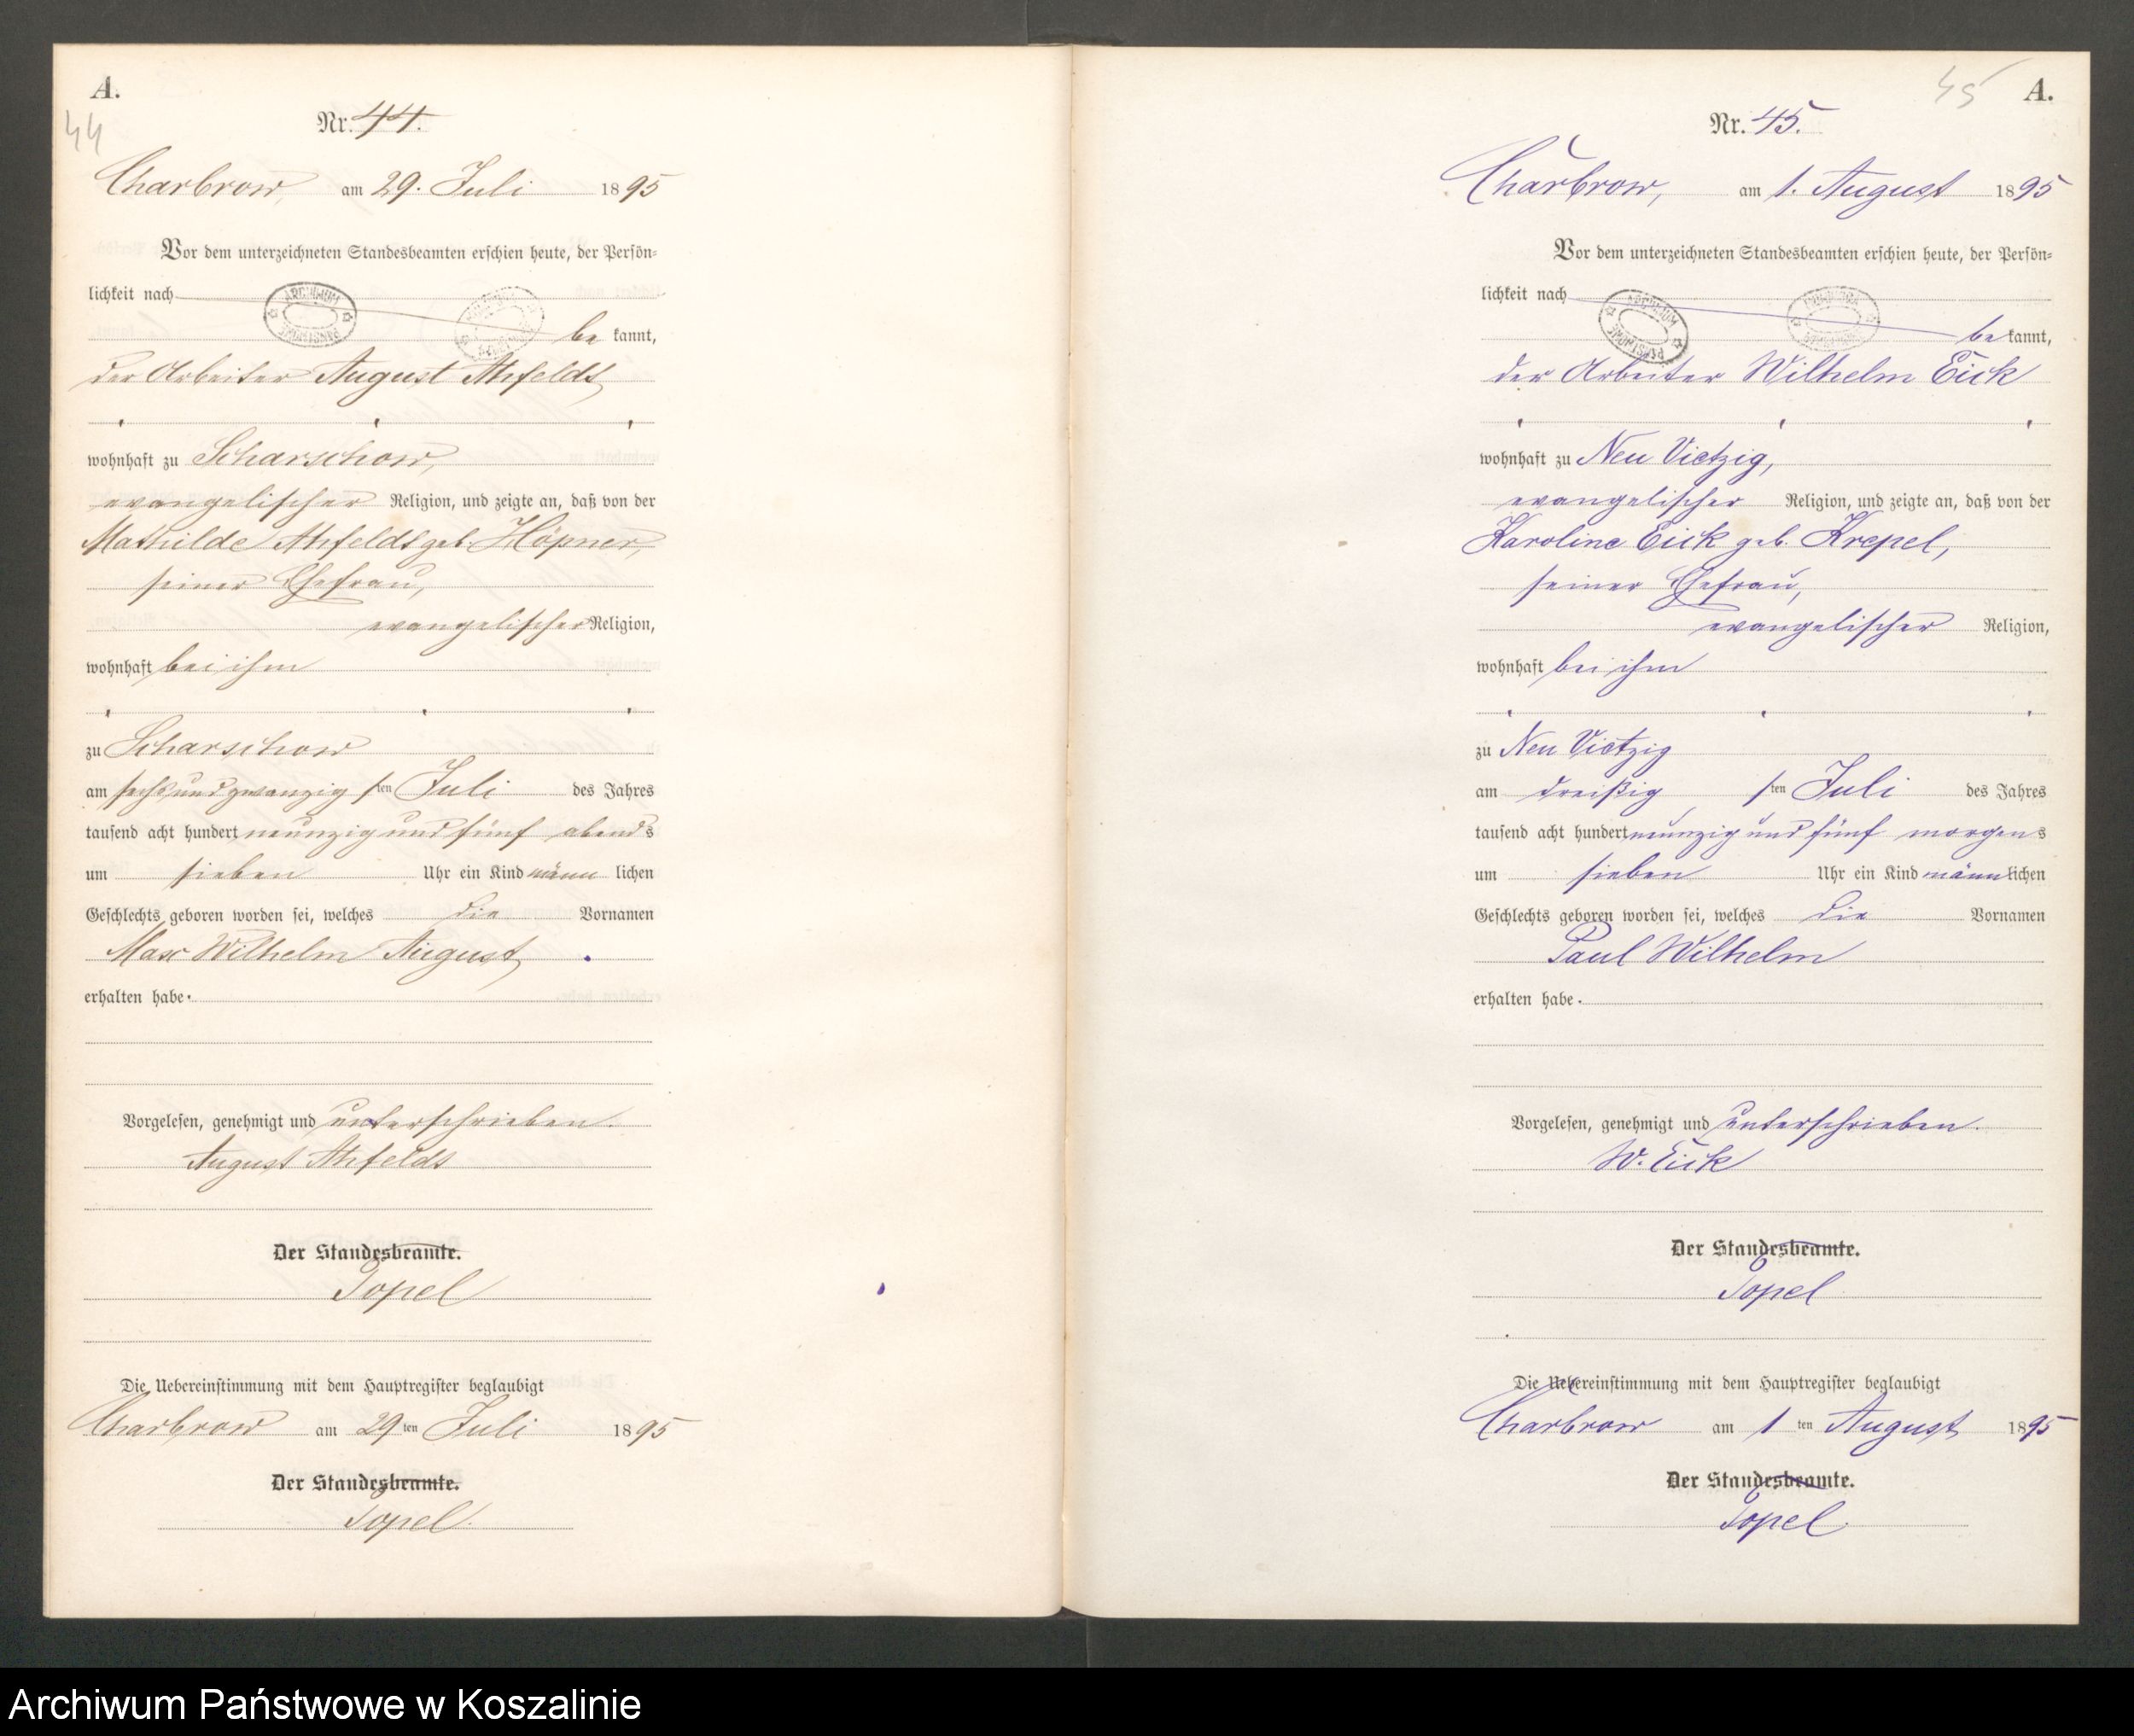 A.
44
Nr. 44.
Charbrow, am 29. Juli 1895
Vor dem unterzeichneten Standesbeamten erschien heute, der Persön-
lichkeit nach
ARCHIWUM PAŃSTWOWE
be kannt,
der Arbeiter August
wohnhaft zu Scharschow,
evangelischer Religion, und zeigte an, daß von der
Mathilde geb. Höpner,
seiner Ehefrau,
evangelischer Religion,
wohnhaft bei ihm
zu Scharschow
am sechsundzwanzig sten Juli des Jahres
tausend acht hundert neunzig und fünf abends
um sieben Uhr ein Kind männ lichen
Geschlechts geboren worden sei, welches die Vornamen
Max Wilhelm August
erhalten habe.
Vorgelesen, genehmigt und unterschrieben.
August
Der Standesbeamte.
Popel
Die Uebereinstimmung mit dem Hauptregister beglaubigt
Charbrow am 29 ten Juli 1895
Der Standesbeamte.
Popel.
45
A.
Nr. 45.
Charbrow, am 1. August 1895
Vor dem unterzeichneten Standesbeamten erschien heute, der Persön-
lichkeit nach
ARCHIWUM PAŃSTWOWE
be kannt,
der Arbeiter Wilhelm Eick
wohnhaft zu Neu Vietzig,
evangelischer Religion, und zeigte an, daß von der
Karoline Eick geb. Krepel,
seiner Ehefrau,
evangelischer Religion,
wohnhaft bei ihm
zu Neu Vietzig
am dreißig sten Juli des Jahres
tausend acht hundert neunzig und fünf morgens
um sieben Uhr ein Kind männlichen
Geschlechts geboren worden sei, welches die Vornamen
Paul Wilhelm
erhalten habe.
Vorgelesen, genehmigt und unterschrieben.
W. Eick
Der Standesbeamte.
Popel
Die Uebereinstimmung mit dem Hauptregister beglaubigt
Charbrow am 1 ten August 1895
Der Standesbeamte.
Popel.
Archiwum Państwowe w Koszalinie